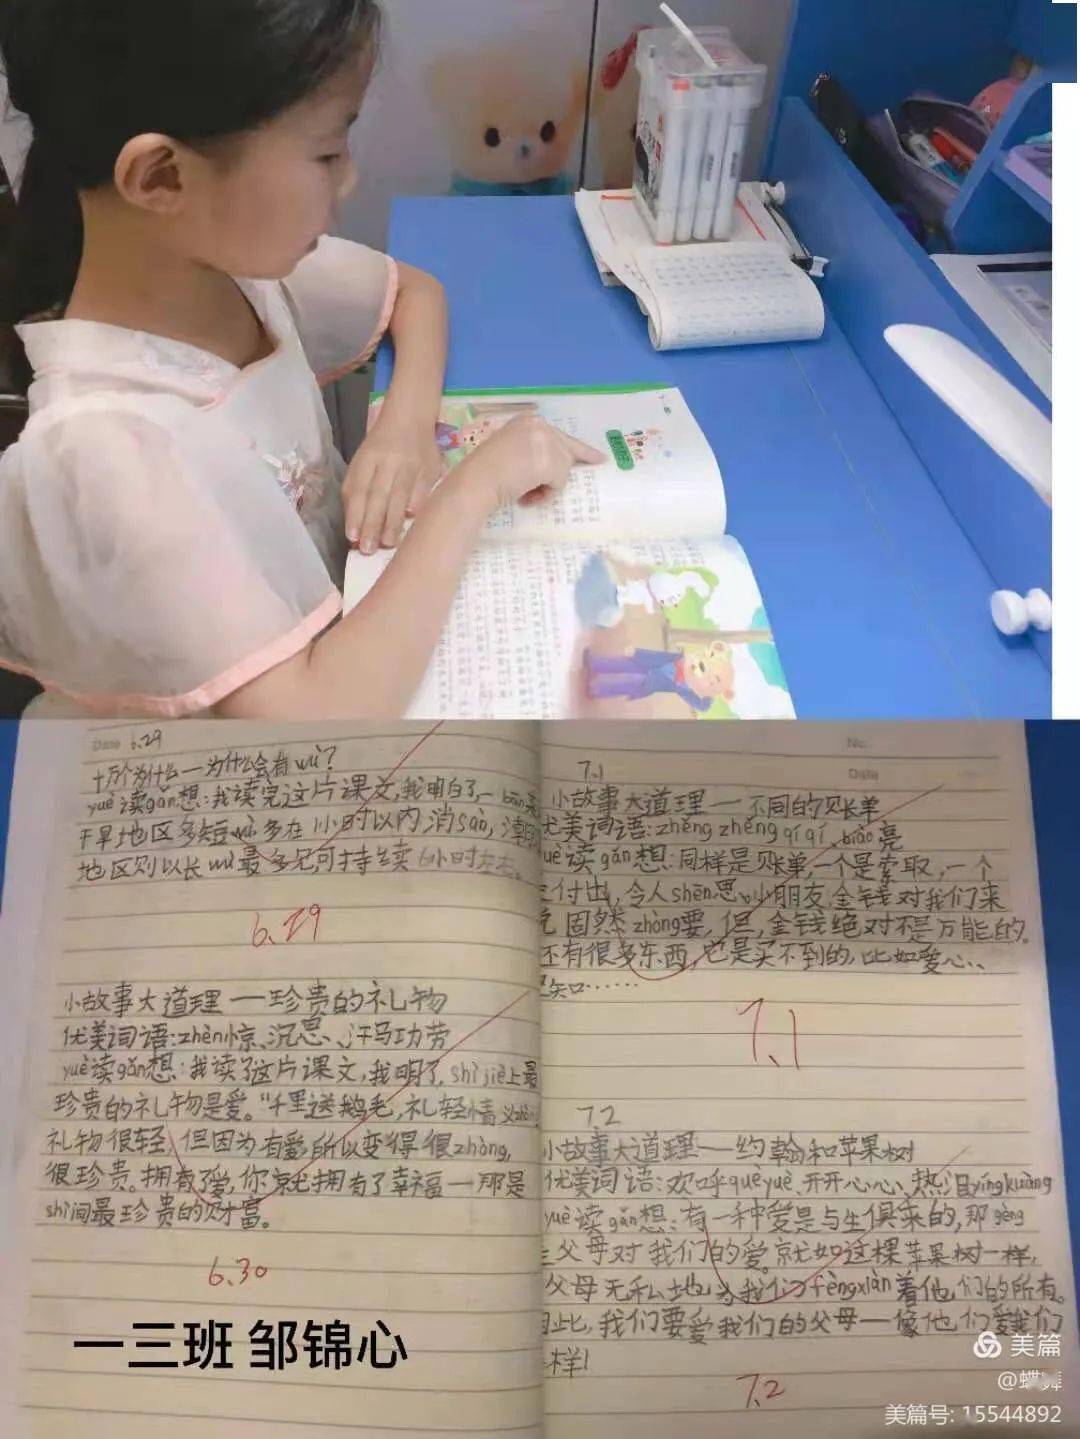 Date 6.29
十万个为什么—为什么会有wù?
yuè读gǎn想:我读完这片课文,我明白了,一bān来
干旱地区多短wù多在1小时以内消sàn,潮
地区则以长wù最多见,可持续6小时左右。
6.29
小故事大道理—珍贵的礼物
优美词语:zhèn惊、沉思、汗马功劳
yuè读gǎn想:我读了这片课文,我明了,shì jiè上最
珍贵的礼物是爱。“千里送鹅毛,礼轻情义zhòng,
礼物很轻,但因为有爱所以变得很zhòng,
很珍贵。拥有了爱,你就拥有了幸福—那是
shì间最珍贵的财富。
6.30
No.
7.1
Date
小故事大道理—不同的账单
优美词语:zhěng zhěng qí qí、biāo亮
yuè读gǎn想:同样是账单,一个是索取,一个
付出,令人shēn思。小朋友,金钱对我们来
固然zhòng要,但,金钱绝对不是万能的。
还有很多东西,它是买不到的,比如爱心、
知……
7.1
7.2
小故事大道理—约翰和苹果树
优美词语:欢呼què yuè、开开心心、热泪yíng kuàng
yuè读gǎn想:有一种爱是与生俱来的,那gèng
父母对我们的爱。就如这棵苹果树一样,
父母无私地为我们fèng xiàn着他们的所有。
因此,我们要爱我们的父母—像他们爱我们
样!
7.2
一三班 邹锦心
美篇
@蝶舞
美篇号: 15544892